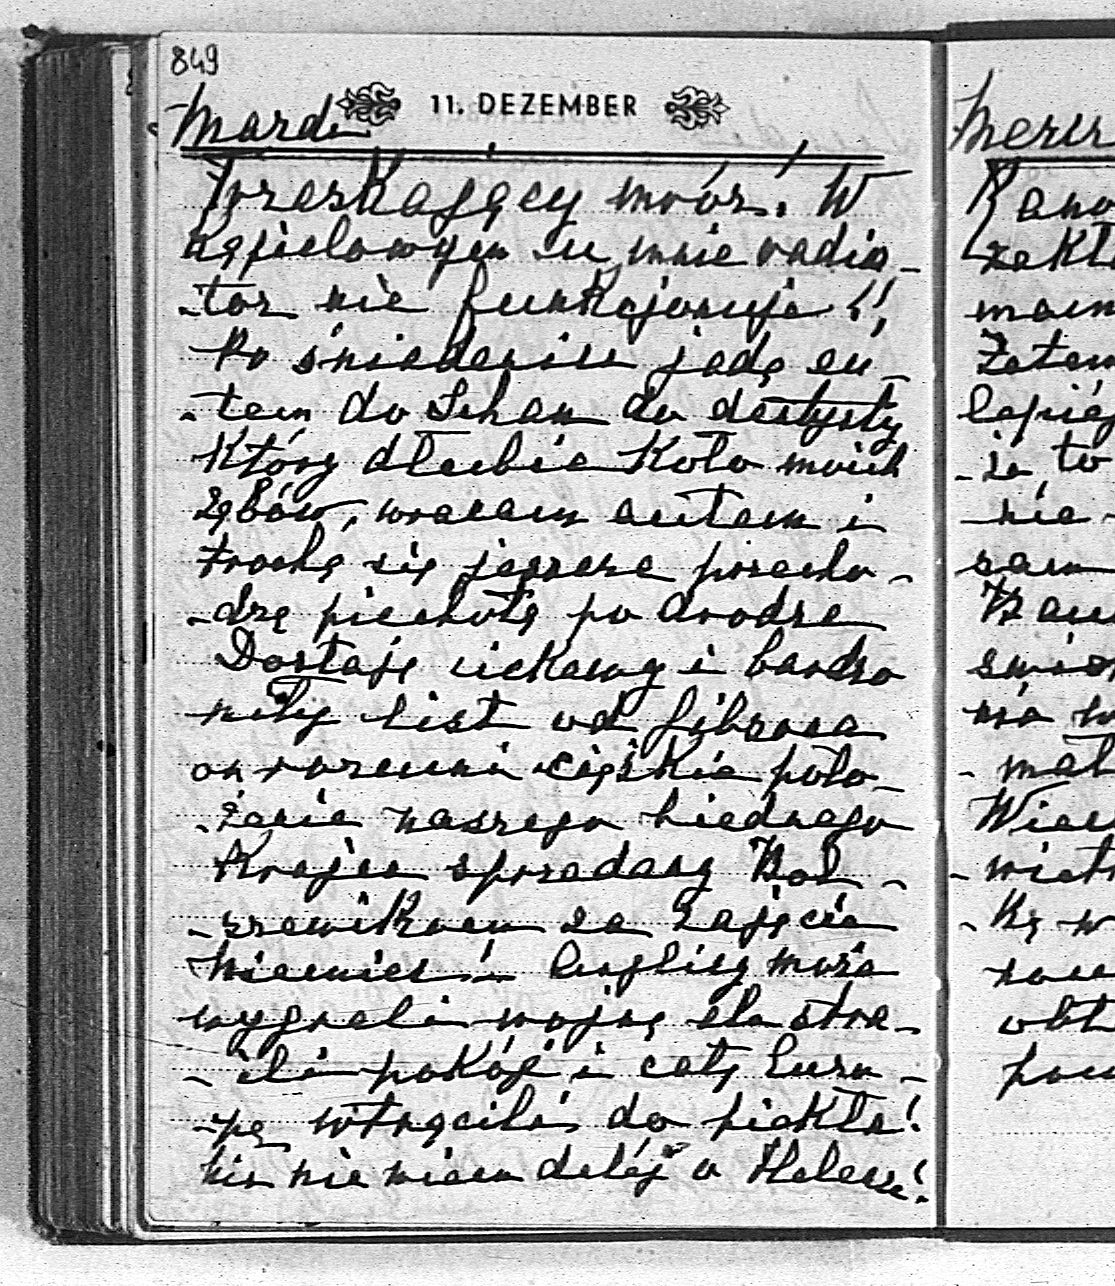 849
11. DEZEMBER
Mardi
Trzaskający mróz! W
kąpielowym u mnie radia-
-tor nie funkcjonuje!!
Po śniadaniu jadę au-
-tem do Schan do dentysty
który dłubie koło moich
zębów, wracam autem i
trochę się jeszcze przecho-
-dzę piechotą po drodze
Dostaję ciekawy i bardzo
miły list od
on rozumi ciężkie poło-
-żenie naszego biednego
Kraju sprzedany Bol-
-szewikom za zajęcie
Niemiec! Anglicy może
wygrali wojnę ale stra-
-cili pokój i całą Euro-
-pę wtrącili do piekła!
Nic nie wiem dalej o Helen!
Mercr
Rano
mam
Żeten
łapią
-je to
nie
sam
mał
Wiec